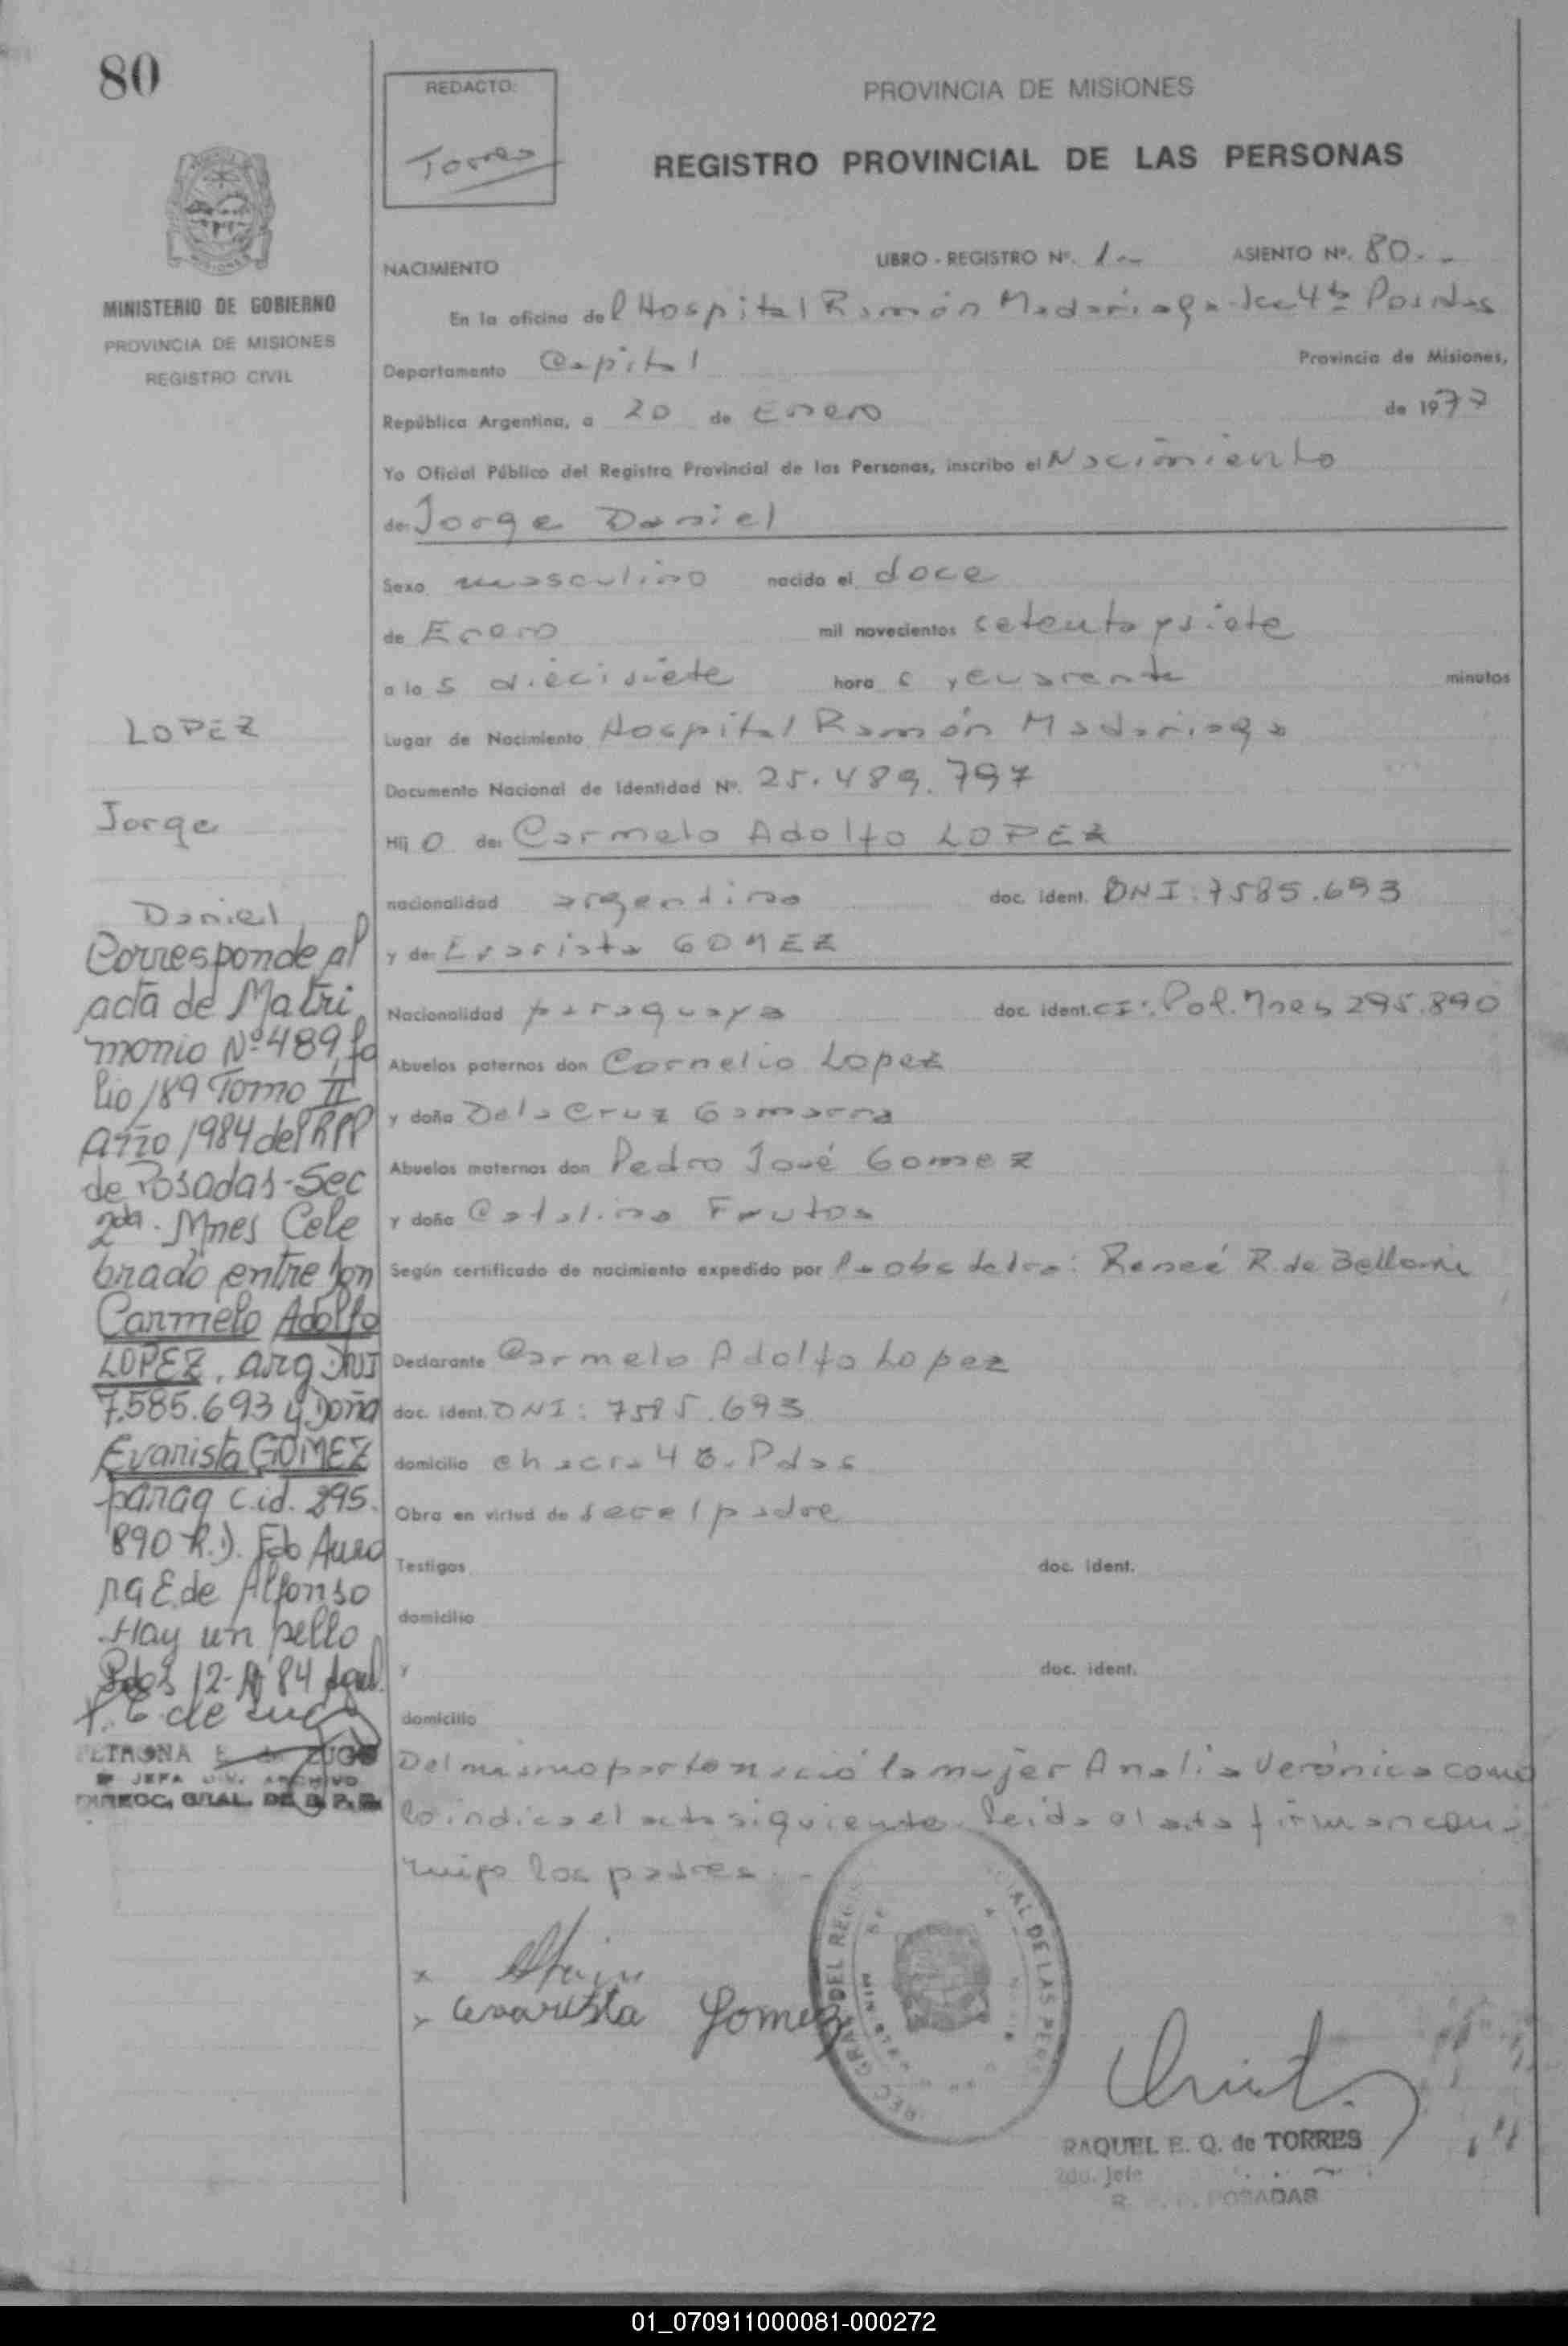 80
REDACTO:
Torres
PROVINCIA DE MISIONES
REGISTRO PROVINCIAL DE LAS PERSONAS
MINISTERIO DE GOBIERNO
PROVINCIA DE MISIONES
REGISTRO CIVIL
NACIMIENTO
LIBRO - REGISTRO Nº. 1.-
ASIENTO Nº. 80.-
En la oficina del Hospital Ramón Madariaga 4ta Posadas
Departamento Capital Provincia de Misiones,
República Argentina, a 20 de Enero de 1977
Yo Oficial Público del Registro Provincial de las Personas, inscribo el Nacimiento
de: Jorge Daniel
Sexo masculino nacido el doce
de Enero mil novecientos setenta y siete
a las diecisiete horas y cuarenta minutos
Lugar de Nacimiento Hospital Ramón Madariaga
Documento Nacional de Identidad Nº. 25.489.797
Hijo de: Carmelo Adolfo LOPEZ
nacionalidad argentina doc. ident. DNI: 7585.693
y de: Evarista GOMEZ
Nacionalidad paraguaya doc. ident. CI: Pol. Mnes 295.890
Abuelos paternos don Cornelio Lopez
y doña Dela Cruz Gamarra
Abuelos maternos don Pedro José Gomez
y doña Catalina Frutos
Según certificado de nacimiento expedido por la obstetra: Reneé R. de Belloni
Declarante Carmelo Adolfo Lopez
doc. ident. DNI: 7585.693
domicilio chacra 48. Pdas
Obra en virtud de ser el padre
Testigos doc. ident.
domicilio
y doc. ident.
domicilio
Del mismo parto nació la mujer Analia Verónica como
lo indica el acta siguiente. leida el acta firman con
migo los padres.-
LOPEZ
Jorge
Daniel
Corresponde al
acta de Matri
monio Nº 489, fo
lio 189 Tomo II
Año 1984 del RPP
de Posadas-Sec
2da. Mnes Cele
brado entre Don
Carmelo Adolfo
LOPEZ, arg DNI
7.585.693 y Doña
Evarista GOMEZ
parag c.id. 295.
890 R.D. Fdo Auro
ra E. de Alfonso
Hay un sello
Pdas 12- 84
P. E. de Lugo
PETRONA E. de LUGO
JEFA DIV. ARCHIVO
DIRECC. GRAL. DE R. P. P.
x
x Evarista Gomez
DEL REGIS
CIAL DE LAS PERS
RAQUEL E. Q. de TORRES
2da. Jefe
R. P. P. POSADAS
01_070911000081-000272